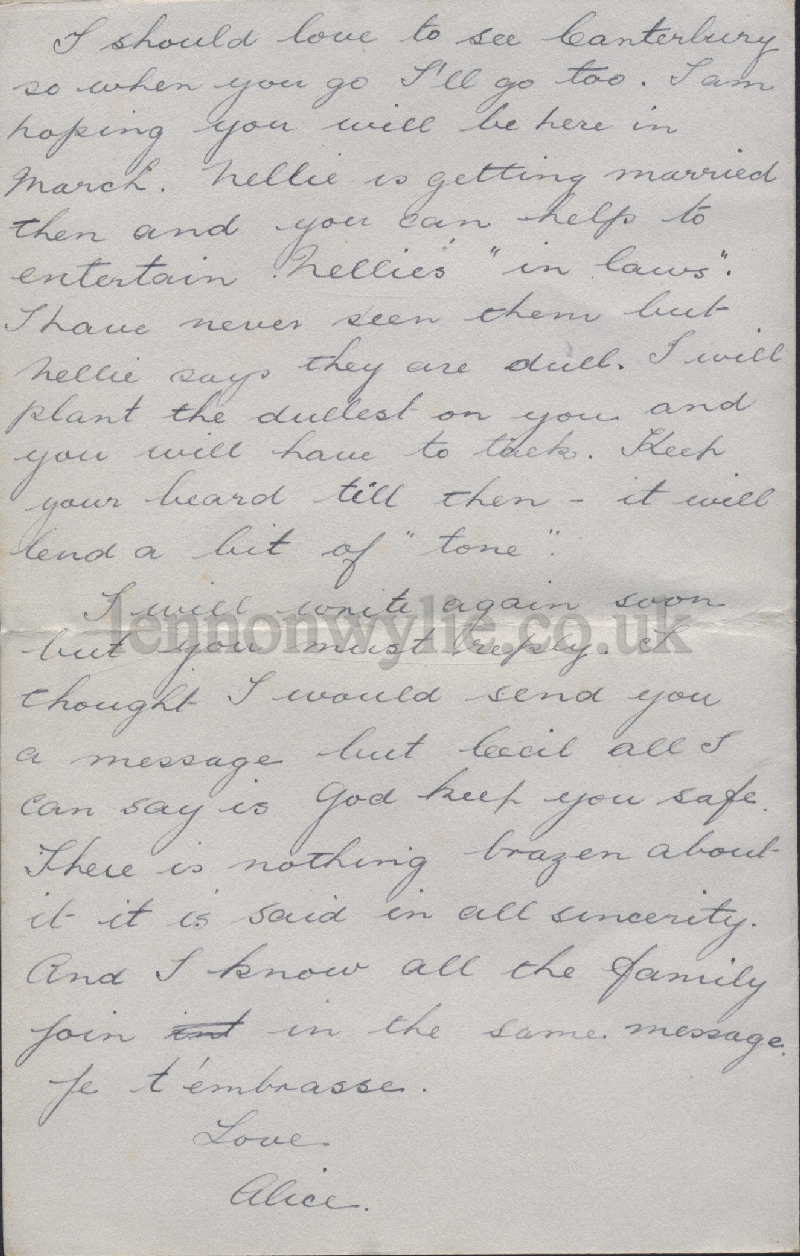 I should love to see Canterbury
so when you go I'll go too. I am
hoping you will be here in
March. Nellie is getting married
then and you can help to
entertain Nellie's "in laws".
I have never seen them but
Nellie says they are dull. I will
plant the dullest on you and
you will have to talk. Keep
your beard till then - it will
lend a bit of "tone".
I will write again soon
but you must reply. I
thought I would send you
a message but Cecil all I
can say is God keep you safe.
There is nothing brazen about
it it is said in all sincerity.
And I know all the family
join int in the same message.
Je t'embrasse.
Love
Alice.
lennonwylie.co.uk